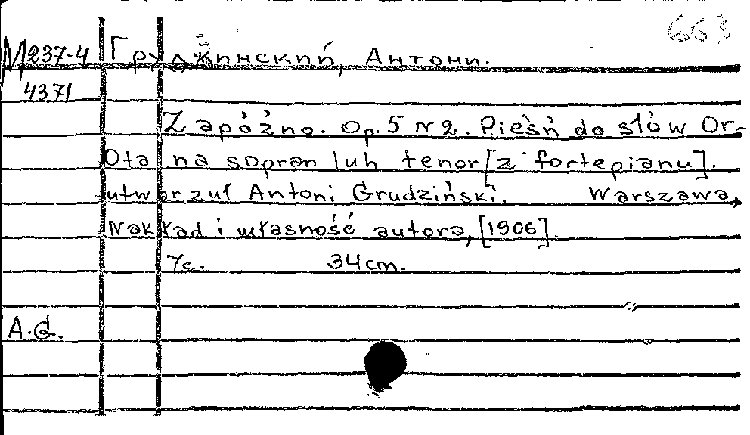 663
М237-4 Грудзинский, Антони.
4371
Zapóźno. Op. 5 N 2. Pieśń do słów Or-
Ota na sopran luh tenor [z fortepianu].
utworzył Antoni Grudziński. Warszawa,
Nakład i własność autora, [1906].
7c. 34cm.
A.G.